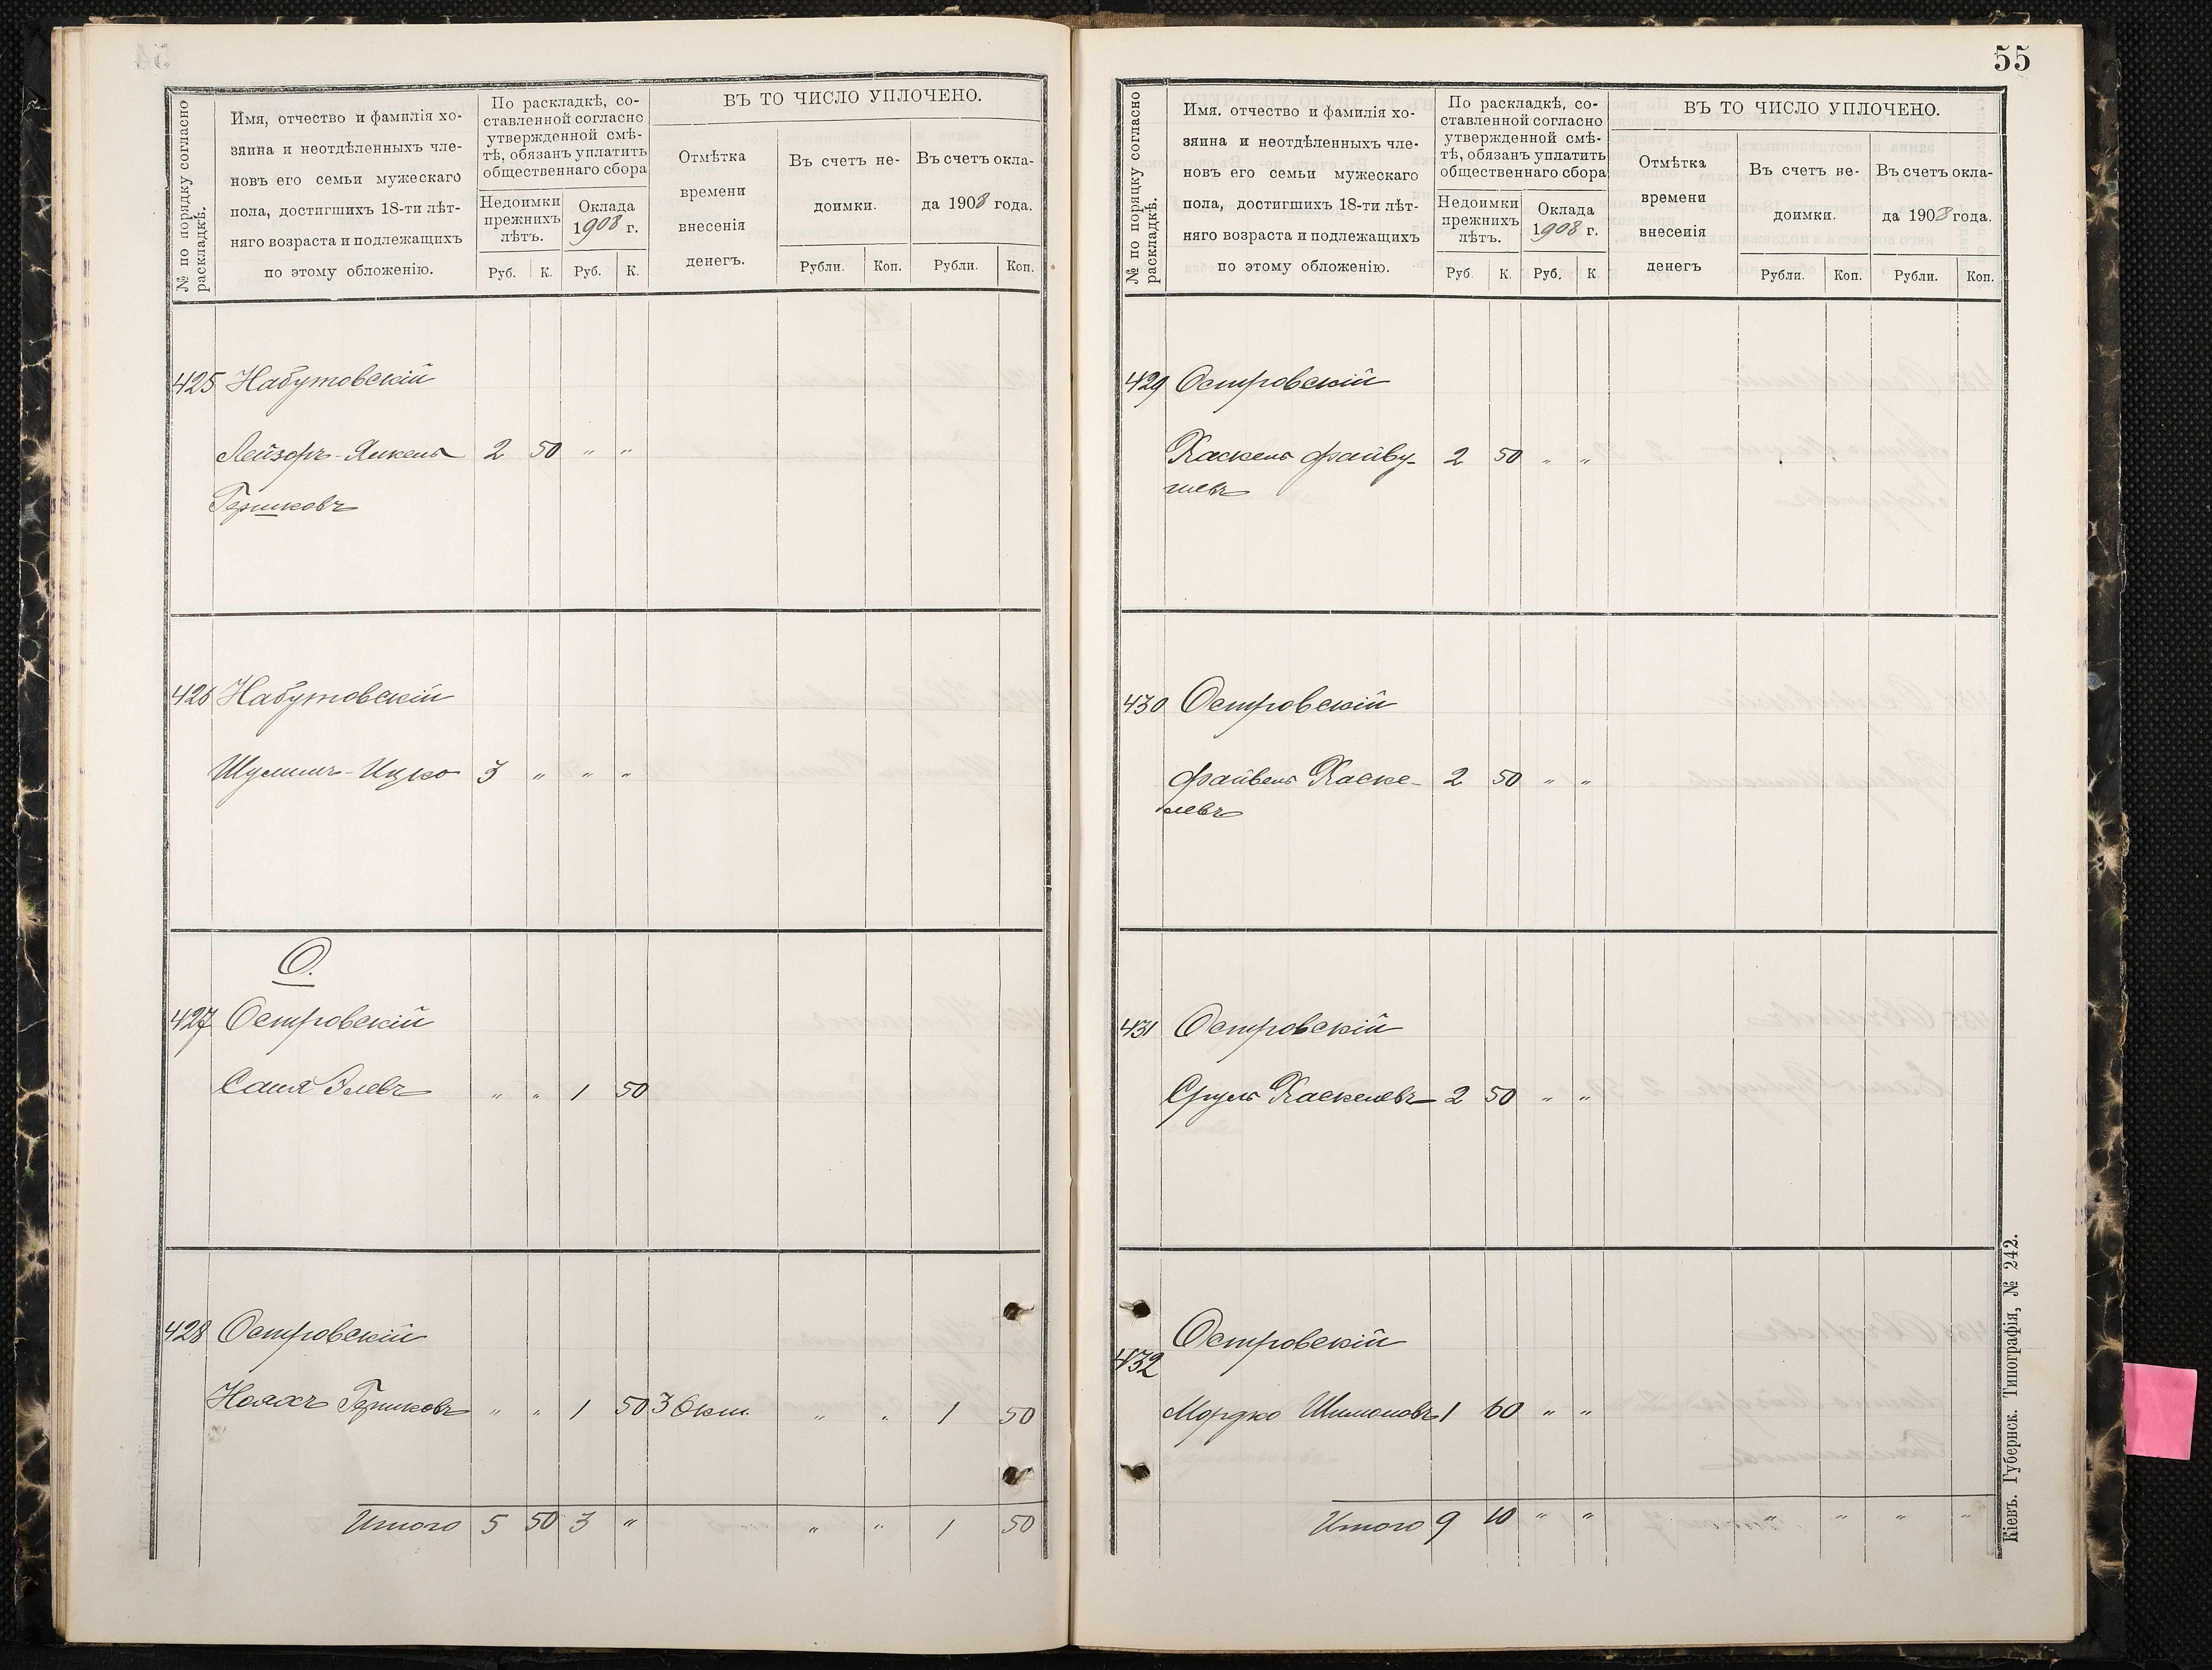 № по порядку согласно
раскладкѣ.
Имя, отчество и фамилія хо-
зяина и неотдѣленныхъ чле-
новъ его семьи мужескаго
пола, достигшихъ 18-ти лѣт-
няго возраста и подлежащихъ
по этому обложенію.
По раскладкѣ, со-
ставленной согласно
утвержденной смѣ-
тѣ, обязанъ уплатить
общественнаго сбора
Недоимки
прежнихъ
лѣтъ.
Оклада
1908 г.
Руб. К. Руб. К.
ВЪ ТО ЧИСЛО УПЛОЧЕНО.
Отмѣтка
времени
внесенія
денегъ.
Въ счетъ не-
доимки.
Въ счетъ окла-
да 1908 года.
Рубли. Коп. Рубли. Коп.
425 Набутовскій
Лейзоръ-Янкель 2 50 " "
Гершковъ
426 Набутовскій
Шулимъ-Ицко 3 " " "
О.
427 Островскій
Саня Элевъ " " 1 50
428 Островскій
Ноахъ Гершковъ " " 1 50 3 Окт. " " 1 50
Итого 5 50 3 " " " 1 50
55
№ по порядку согласно
раскладкѣ.
Имя. отчество и фамилія хо-
зяина и неотдѣленныхъ чле-
новъ его семьи мужескаго
пола, достигшихъ 18-ти лѣт-
няго возраста и подлежащихъ
по этому обложенію.
По раскладкѣ, со-
ставленной согласно
утвержденной смѣ-
тѣ, обязанъ уплатить
общественнаго сбора
Недоимки
прежнихъ
лѣтъ.
Оклада
1908 г.
Руб. К. Руб. К.
ВЪ ТО ЧИСЛО УПЛОЧЕНО.
Отмѣтка
времени
внесенія
денегъ
Въ счетъ не-
доимки.
Въ счетъ окла-
да 1908 года.
Рубли. Коп. Рубли. Коп.
429 Островскій
Хаскель Файву- 2 50 " "
шевъ
430 Островскій
Файвель Хаске- 2 50 " "
левъ
431 Островскій
Сруль Хаскелевъ 2 50 " "
432 Островскій
Мордко Шимоновъ 1 60 " "
Итого 9 10 " " " " " "
Кіевъ. Губернск. Типографія, № 242.